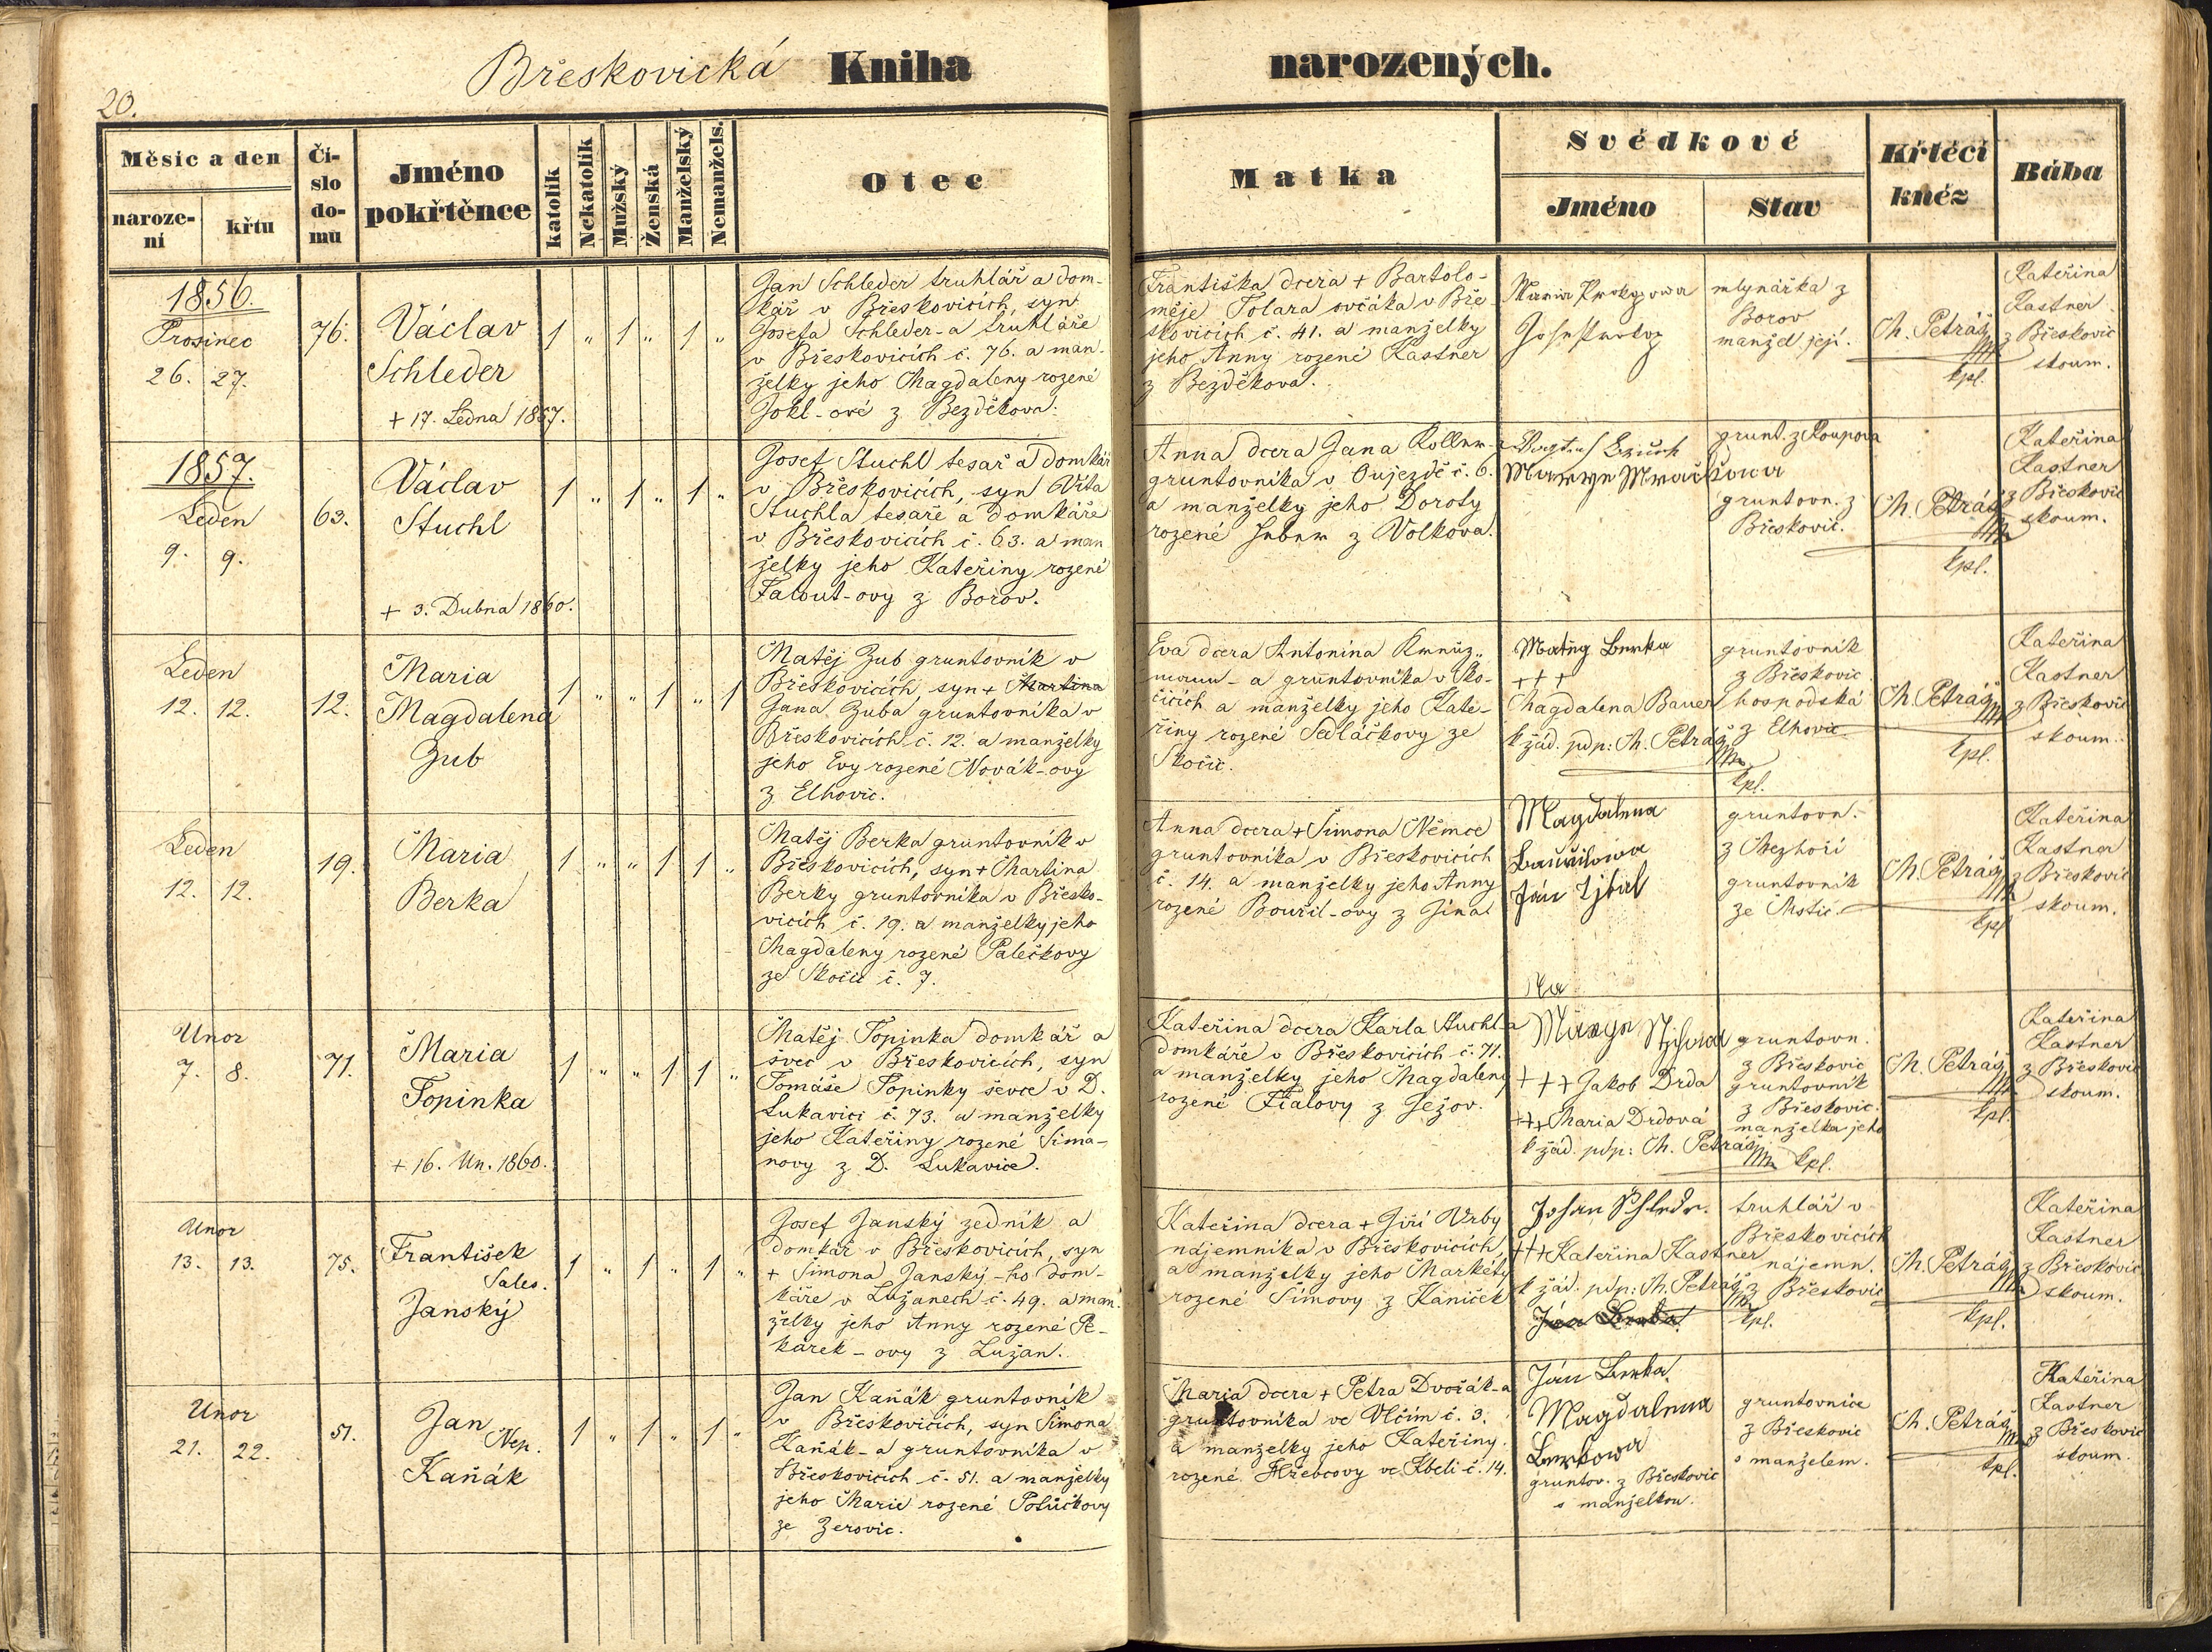 20.
Břeskovická Kniha narozených.
Měsíc a den
naroze-
ní
křtu
Čí-
slo
do-
mu
Jméno
pokřtěnce
katolík
Nekatolík
Mužský
Ženská
Manželský
Nemanžels.
Otec
Matka
Svědkové
Jméno
Stav
Křtěcí
kněz
Bába
1856.
Prosinec
26. 27.
76.
Václav
Schleder
+ 17. Ledna 1857.
1 " 1 " 1 "
Jan Schleder truhlář a dom-
kář v Břeskovicích, syn
Josefa Schleder-a truhláře
v Břeskovicích č. 76. a man-
želky jeho Magdaleny rozené
Jokl-ové z Bezděkova.
Františka dcera + Bartolo-
měje Tolara ovčáka v Bře-
skovicích č. 41. a manželky
jeho Anny rozené Kastner
z Bezděkova.
Maria
mlynářka z
Borov
manžel její.
Th. Petráš
kpl.
Kateřina
Kastner
z Břeskovic
skoum.
1857.
Leden
9. 9.
63.
Václav
Stuchl
+ 3. Dubna 1860.
1 " 1 " 1 "
Josef Stuchl tesař a domkář
v Břeskovicích, syn Víta
Stuchla tesaře a domkáře
v Břeskovicích č. 63. a man
želky jeho Kateřiny rozené
Falout-ovy z Borov.
Anna dcera Jana
gruntovníka v Oujezdě č. 6.
a manželky jeho Doroty
rozené z Volkova.
grunt. z Roupova
gruntovn. z
Břeskovic.
Th. Petráš
kpl.
Kateřina
Kastner
z Břeskovic
skoum.
Leden
12. 12.
12.
Maria
Magdalena
Zub
1 " " 1 " 1
Matěj Zub gruntovník v
Břeskovicích, syn + Martina
Jana Zuba gruntovníka v
Břeskovicích č. 12. a manželky
jeho Evy rozené Novák-ovy
z Elhovic.
Eva dcera Antonína
a gruntovníka v Sko-
čicích a manželky jeho Kate-
řiny rozené Sedláčkovy ze
Skočic.
Matěg Berka
+++
Magdalena Bauer
k žád. pdp: Th. Petráš
kpl.
gruntovník
z Břeskovic
hospodská
z Elhovic
Th. Petráš
kpl.
Kateřina
Kastner
z Břeskovic
skoum.
Leden
12. 12.
19.
Maria
Berka
1 " " 1 1 "
Matěj Berka gruntovník v
Břeskovicích, syn + Martina
Berky gruntovníka v Břesko-
vicích č. 19. a manželky jeho
Magdaleny rozené Palečkovy
ze Skočic č. 7.
Anna dcera + Šimona Němce
gruntovníka v Břeskovicích
č. 14. a manželky jeho Anny
rozené Bouřil-ovy z Jína
Magdalena
Ján
gruntovn.
z Mezhoří
gruntovník
ze Mstic
Th. Petráš
kpl.
Kateřina
Kastner
z Břeskovic
skoum.
Unor
7. 8.
71.
Maria
Topinka
+ 16. Un. 1860.
1 " " 1 1 "
Matěj Topinka domkář a
švec v Břeskovicích, syn
Tomáše Topinky ševce v D.
Lukavici č. 73. a manželky
jeho Kateřiny rozené Sima-
novy z D. Lukavice.
Kateřina dcera Karla Stuchl-a
domkáře v Břeskovicích č. 71.
a manželky jeho Magdaleny
rozené Fialovy z Ježov.
+++ Jakob Drda
+++ Maria Drdová
k žád. pdp: Th. Petráš
kpl.
gruntovn.
z Břeskovic
gruntovník
z Břeskovic.
manželka jeho
Th. Petráš
kpl.
Kateřina
Kastner
z Břeskovic
skoum.
Unor
13. 13.
75.
František
Sales.
Janský
1 " 1 " 1 "
Josef Janský zedník a
domkář v Břeskovicích, syn
+ Simona Janský-ho dom-
káře v Lužanech č. 49. a man
želky jeho Anny rozené Pe-
kárek-ovy z Lužan.
Kateřina dcera + Jiří Vrby
nájemníka v Břeskovicích
a manželky jeho Markéty
rozené Símovy z Kaniček
+++ Kateřina Kastner
k žád. pdp: Th. Petráš
kpl.
truhlář v
Břeskovicích
nájemn.
z Břeskovic
Th. Petráš
kpl.
Kateřina
Kastner
z Břeskovic
skoum.
Unor
21. 22.
51.
Jan
Nep.
Kaňák
1 " 1 " 1 "
Jan Kaňák gruntovník
v Břeskovicích, syn Šimona
Kaňák-a gruntovníka v
Břeskovicích č. 51. a manželky
jeho Marie rozené Potůčkovy
ze Zerovic.
Maria dcera + Petra Dvořák-a
gruntovníka ve Vlčím č. 3.
a manželky jeho Kateřiny
rozené Hřebcovy ve Kbeli č. 14.
Ján Berka
Magdalena
Berkowa
gruntov. z Břeskovic
s manželkou.
gruntovnice
z Břeskovic
s manželem.
Th. Petráš
kpl.
Kateřina
Kastner
z Břeskovic
skoum.